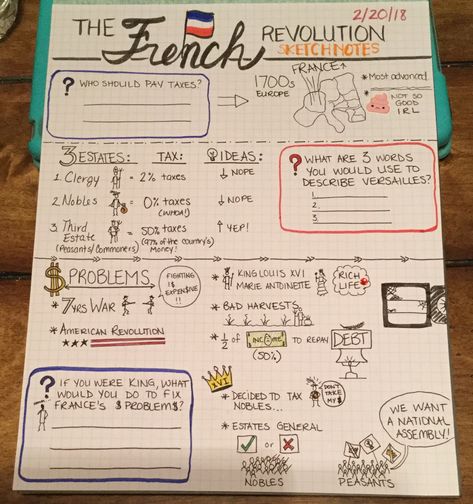 2/20/18
THE French REVOLUTION
SKETCHNOTES
? WHO SHOULD PAY TAXES?
1700s
EUROPE
FRANCE↑
*Most advanced
*
NOT SO
GOOD
IRL
3 ESTATES: TAX: IDEAS:
1. Clergy = 2% taxes ↓ NOPE
2. Nobles = 0% taxes ↓ NOPE
(WHOA!)
3. Third = 50% taxes ↑ YEP!
Estate (97% of the country's
(Peasants/Commoners) Money!)
? WHAT ARE 3 WORDS
YOU WOULD USE TO
DESCRIBE VERSAILLES?
1.
2.
3.
$ PROBLEMS
* 7 YRS WAR
FIGHTING
IS
EXPEN$IVE
!!
* AMERICAN REVOLUTION
* KING LOUIS XVI
MARIE ANTOINETTE
RICH
LIFE
* BAD HARVESTS
* 1/2 of INCOME TO REPAY DEBT
(50%)
? IF YOU WERE KING, WHAT
WOULD YOU DO TO FIX
FRANCE'S $ PROBLEM$?
XVI
* DECIDED TO TAX
NOBLES...
DON'T
TAKE
MY $
* ESTATES GENERAL
✓ or X
NOBLES
WE WANT
A NATIONAL
ASSEMBLY!
PEASANTS